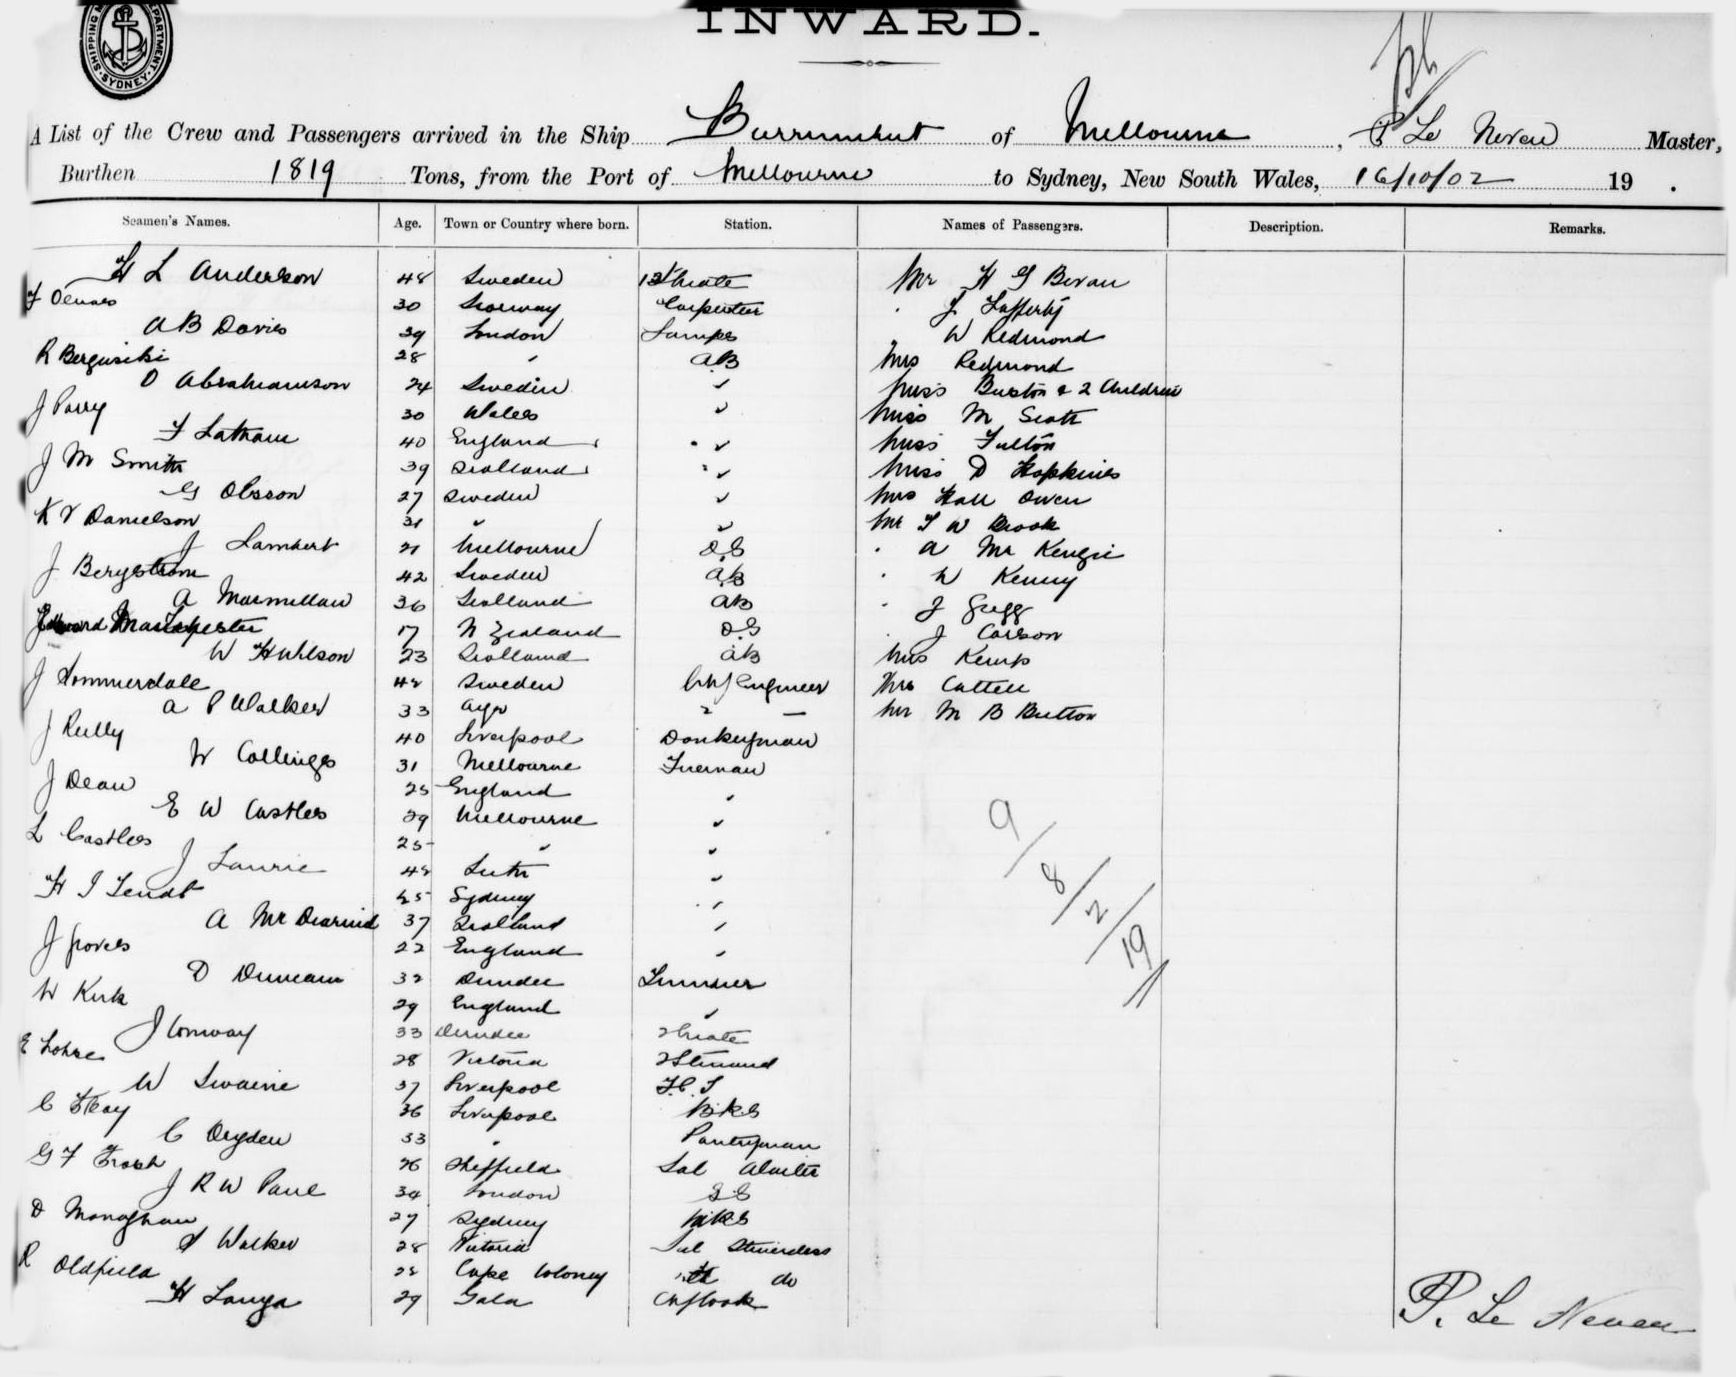 SHIPPING DEPARTMENT. SYDNEY
INWARD.
A List of the Crew and Passengers arrived in the Ship Burrumbeet of Melbourne, P Le Neveu Master,
Burthen 1819 Tons, from the Port of Melbourne to Sydney, New South Wales, 16/10/02 19 .
Seamen's Names. Age. Town or Country where born. Station. Names of Passengers. Description. Remarks.
H L Anderson 48 Sweden 1st Mate Mr H G Bevan
30 Norway Carpenter J Lafferty
A B Davies 39 London Lamps W Redmond
R 28 " AB Mrs Redmond
O Abrahamson 24 Sweden " Miss Burton & 2 Children
J Parry 30 Wales " Miss M Scott
F Latham 40 England " Miss Fulton
J M Smith 39 Scotland " Miss D Hopkins
G Olsson 27 Sweden " Mrs Hall Owen
K V Danielson 31 " " Mr T W Brook
J Lambert 21 Melbourne O.S A McKenzie
J Bergstrom 42 Sweden AB W Kenny
A Macmillan 36 Scotland AB J Gregg
17 N Zealand O.S J Carson
W H Wilson 23 Scotland AB Mrs Kemp
J Sommerdale 42 Sweden Engineer Mrs Cattell
A P Walker 33 Ayr " Mr M B Button
J Reilly 40 Liverpool Donkeyman
W Collings 31 Melbourne Fireman
J Dean 25 England "
E W Castles 29 Melbourne "
L Castles 25 " "
J Laurie 42 Leith "
H J 45 Sydney "
A McDiarmid 37 Scotland "
J Groves 22 England "
D Duncan 32 Dundee Trimmer
W Kirk 29 England "
J Conway 33 Dundee 2 Mate
E Lohse 28 Victoria 2 Steward
W Swaine 37 Liverpool F.C.S
C 36 Liverpool BKS
C Dryden 33 " Pantryman
G F 26 Sheffield Sal Waiter
J R W Paul 34 London
D Monaghan 27 Sydney BKS
Walker 28 Victoria Sal Stewardess
R Oldfield 22 Cape Coloney do
H Lanya 29 Ch Cook
9/8/2/19/
P. Le Neveu